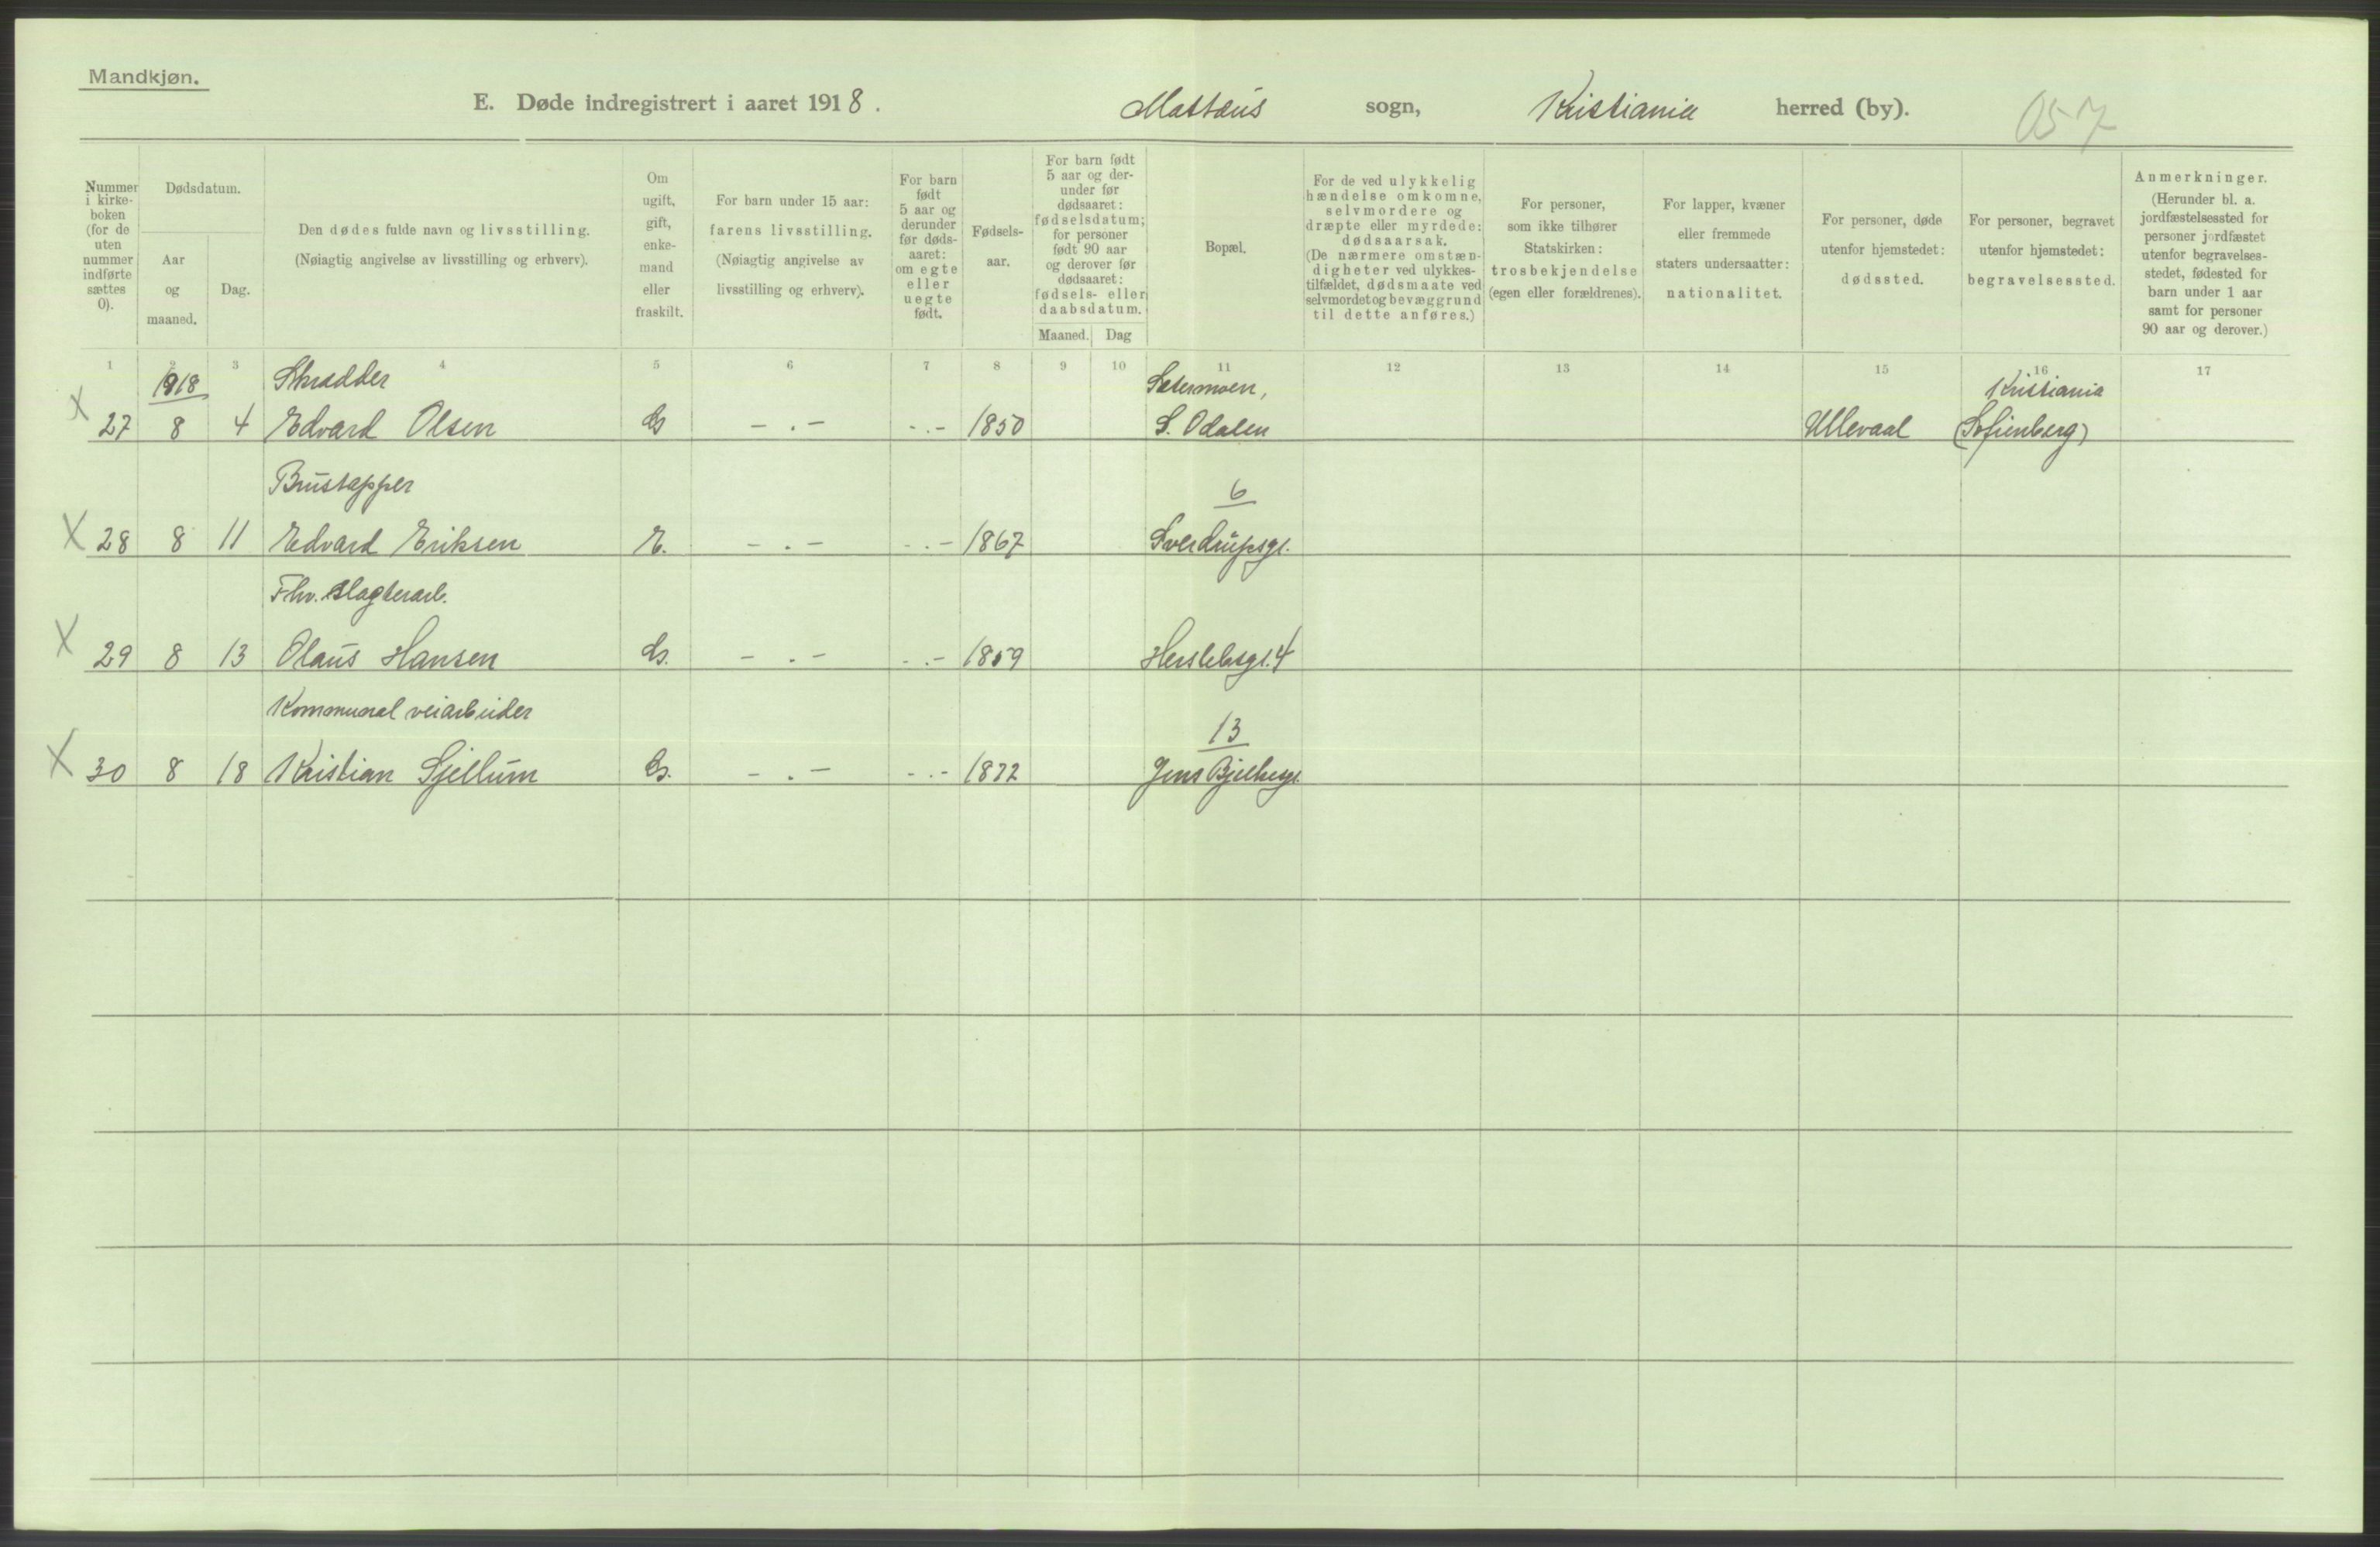 Mandkjøn.
E. Døde indregistrert i aaret 1918. Mattæus sogn, Kristiania herred (by). 057
Nummer i kirke-boken (for de uten nummer indførte sættes 0).
Dødsdatum.
Aar og maaned.
Dag.
Den dødes fulde navn og livsstilling.
(Nøiagtig angivelse av livsstilling og erhverv).
Om ugift, gift, enke-mand eller fraskilt.
For barn under 15 aar:
farens livsstilling.
(Nøiagtig angivelse av
livsstilling og erhverv).
For barn
født
5 aar og
derunder
før døds-
aaret:
om egte
eller
uegte
født.
Fødsels-
aar.
For barn født
5 aar og der-
under før
dødsaaret:
fødselsdatum;
for personer
født 90 aar
og derover før
dødsaaret:
fødsels- eller
daabsdatum.
Maaned. Dag
Bopæl.
For de ved ulykkelig
hændelse omkomne,
selvmordere og
dræpte eller myrdede:
dødsaarsak.
(De nærmere omstæn-
digheter ved ulykkes-
tilfældet, dødsmaate ved
selvmordet og bevæggrund
til dette anføres.)
For personer,
som ikke tilhører
Statskirken:
trosbekjendelse
(egen eller forældrenes).
For lapper, kvæner
eller fremmede
staters undersaatter:
nationalitet.
For personer, døde
utenfor hjemstedet:
dødssted.
For personer, begravet
utenfor hjemstedet:
begravelsessted.
Anmerkninger.
(Herunder bl. a.
jordfæstelsessted for
personer jordfæstet
utenfor begravelses-
stedet, fødested for
barn under 1 aar
samt for personer
90 aar og derover.)
1 2 3 4 5 6 7 8 9 10 11 12 13 14 15 16 17
1918 Skrædder Sætermoen, Kristiania
X 27 8 4 Edvard Olsen G - . - - . - 1850 S. Odalen Ullevaal (Sofienberg)
Brustapper 6
X 28 8 11 Edvard Eriksen E. - . - - . - 1867 Sverdrupsgt.
Fhv. slagterarb.
X 29 8 13 Olaus Hansen G. - . - - . - 1859 Herslebsgt. 4
Kommunal veiarbeider 13
X 30 8 18 Kristian Sjellum G. - . - - . - 1872 Jens Bjelkesgt.